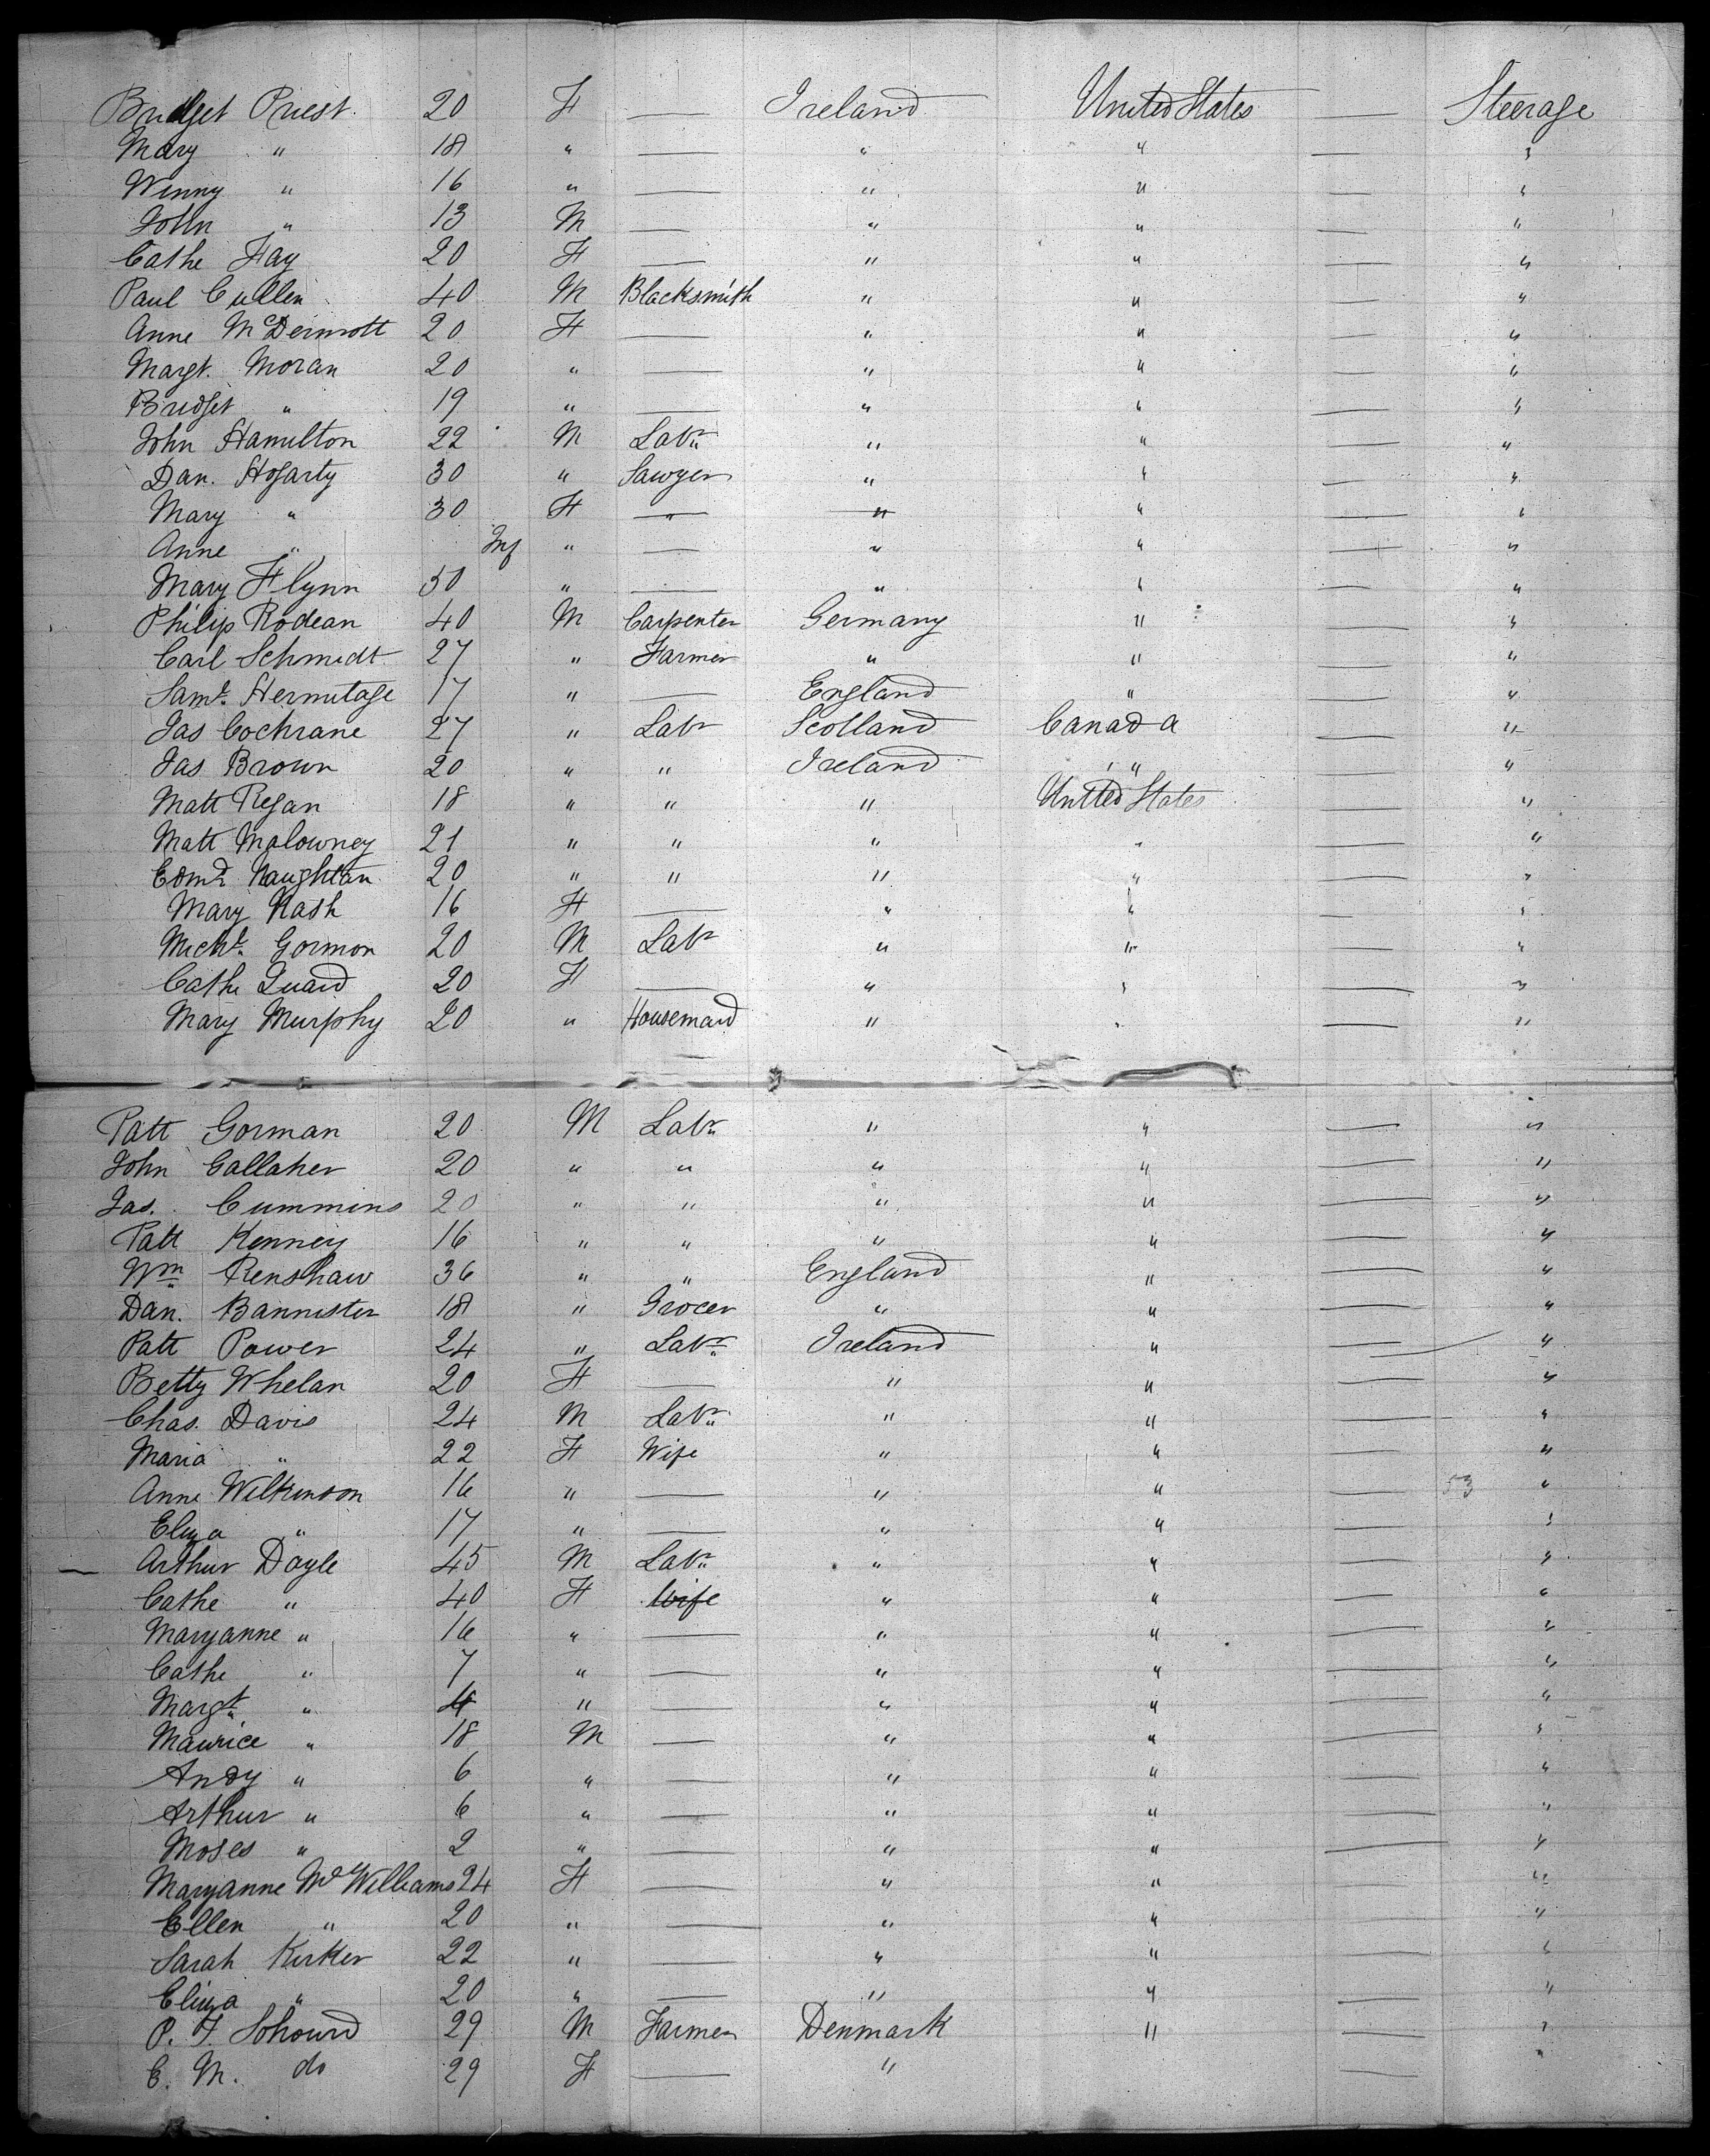 Bridget Priest 20 F — Ireland United States — Steerage
Mary " 18 " — " " — "
Winny " 16 " — " " — "
John " 13 M — " " — "
Cathe Fay 20 F — " " — "
Paul Cullen 40 M Blacksmith " " — "
Anne McDermott 20 F — " " — "
Margt. Moran 20 " — " " — "
Bridget " 19 " — " " — "
John Hamilton 22 M Labr " " — "
Dan. Hogarty 30 " Sawyer " " — "
Mary " 30 F — " " — "
Anne " Inf " — " " — "
Mary Flynn 50 " — " " — "
Philip Rodean 40 M Carpenter Germany " — "
Carl Schmidt 27 " Farmer " " — "
Saml. Hermitage 17 " — England " — "
Jas Cochrane 27 " Labr Scotland Canada — "
Jas Brown 20 " " Ireland " — "
Matt Regan 18 " " " United States — "
Matt Malowney 21 " " " " — "
Edmd Naughtan 20 " " " " — "
Mary Nash 16 F — " " — "
Michl. Gormon 20 M Labr " " — "
Cathe Quaid 20 F — " " — "
Mary Murphy 20 " Housemaid " " — "
Patt Gorman 20 M Labr " " — "
John Gallaher 20 " " " " — "
Jas. Cummins 20 " " " " — "
Patt Kenney 16 " " " " — "
Wm Renshaw 36 " " England " — "
Dan. Bannister 18 " Grocer " " — "
Patt Power 24 " Labr Ireland " — "
Betty Whelan 20 F — " " — "
Chas. Davis 24 M Labr " " — "
Maria " 22 F Wife " " — "
Anne Wilkinson 16 " — " " — 53 "
Eliza " 17 " — " " — "
— Arthur Doyle 45 M Labr " " — "
Cathe " 40 F Wife " " — "
Maryanne " 16 " — " " — "
Cathe " 7 " — " " — "
Margt " 4 " — " " — "
Maurice " 18 M — " " — "
Andy " 6 " — " " — "
Arthur " 6 " — " " — "
Moses " 2 " — " " — "
Maryanne McWilliams 24 F — " " — "
Ellen " 20 " — " " — "
Sarah Kirker 22 " — " " — "
Eliza " 20 " — " " — "
P. F. Schourd 29 M Farmer Denmark " — "
C. M. do 29 F — " — "